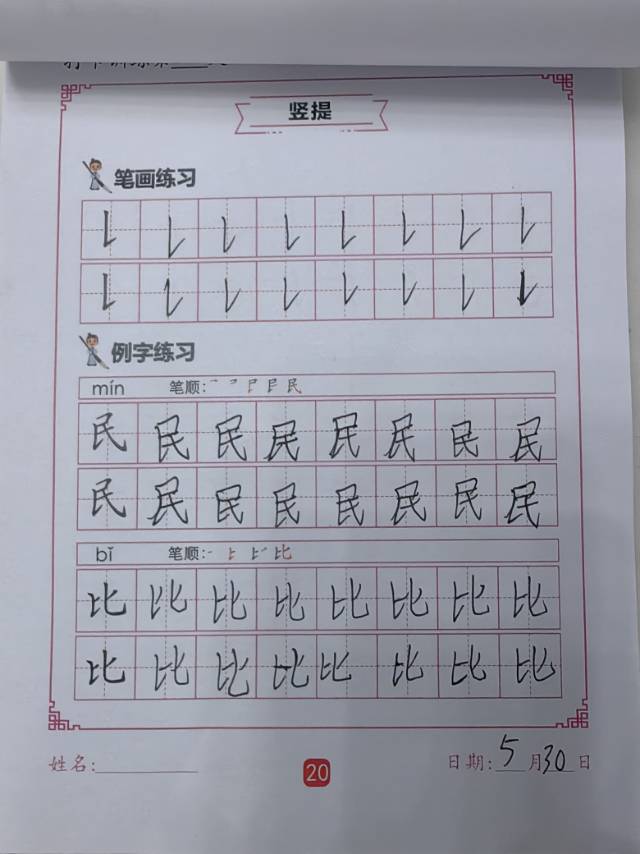 竖提
笔画练习
例字练习
mín 笔顺:
民 民 民 民 民 民 民 民
民 民 民 民 民 民 民 民
bǐ 笔顺:
比 比 比 比 比 比 比 比
比 比 比 比 比 比 比 比
姓名: 20 日期: 5 月 30 日